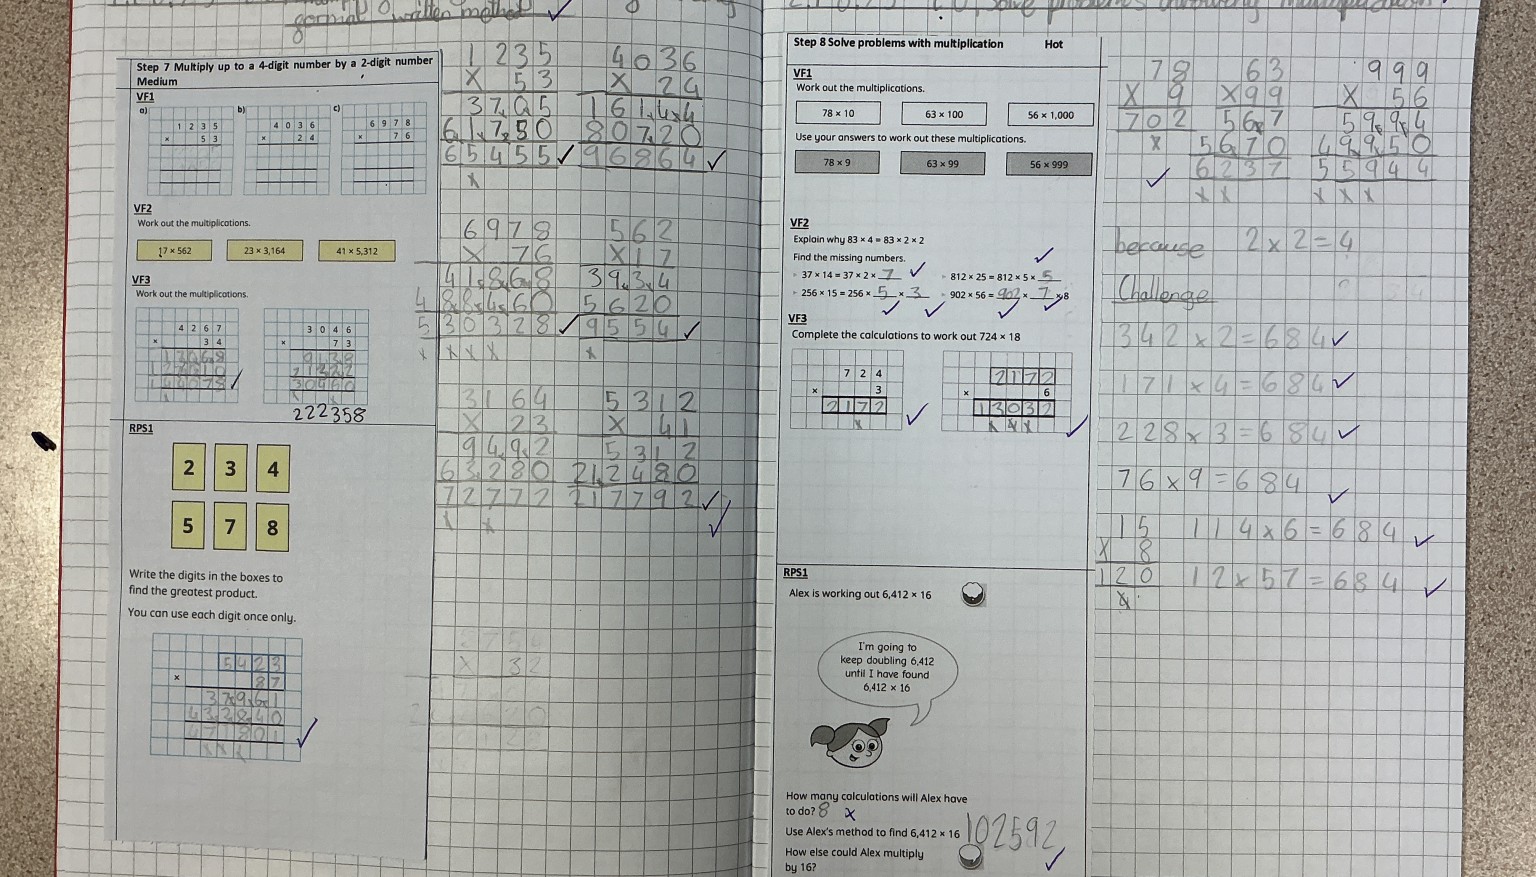 formal written method
Step 7 Multiply up to a 4-digit number by a 2-digit number
Medium
VF1
a)
1 2 3 5
× 5 3
b)
4 0 3 6
× 2 4
c)
6 9 7 8
× 7 6
VF2
Work out the multiplications.
17 × 562
23 × 3,164
41 × 5,312
VF3
Work out the multiplications.
4 2 6 7
× 3 4
3 0 4 6
× 7 3
222358
RPS1
2 3 4
5 7 8
Write the digits in the boxes to
find the greatest product.
You can use each digit once only.
5423
× 87
37961
433840
471801
1235
X 53
3705
61750
65455
4036
X 24
16144
80720
96864
6978
X 76
41868
488460
530328
562
X17
3934
5620
9554
3164
X 23
9492
63280
72772
5312
X 41
5312
212480
217792
X 32
Step 8 Solve problems with multiplication Hot
VF1
Work out the multiplications.
78 × 10
63 × 100
56 × 1,000
Use your answers to work out these multiplications.
78 × 9
63 × 99
56 × 999
VF2
Explain why 83 × 4 = 83 × 2 × 2
Find the missing numbers.
37 × 14 = 37 × 2 × 7
812 × 25 = 812 × 5 × 5
256 × 15 = 256 × 5 × 3
902 × 56 = 902 × 7 × 8
VF3
Complete the calculations to work out 724 × 18
7 2 4
× 3
2172
2172
× 6
13032
RPS1
Alex is working out 6,412 × 16
I'm going to
keep doubling 6,412
until I have found
6,412 × 16
How many calculations will Alex have
to do? 8 x
Use Alex's method to find 6,412 × 16 102592
How else could Alex multiply
by 16?
78
X 9
702
63
X99
567
5670
6237
999
X 56
5994
49950
55944
because 2 x 2 = 4
Challenge
342 x 2 = 684
171 x 4 = 684
228 x 3 = 684
76 x 9 = 684
15
X 8
120
114 x 6 = 684
12 x 57 = 684